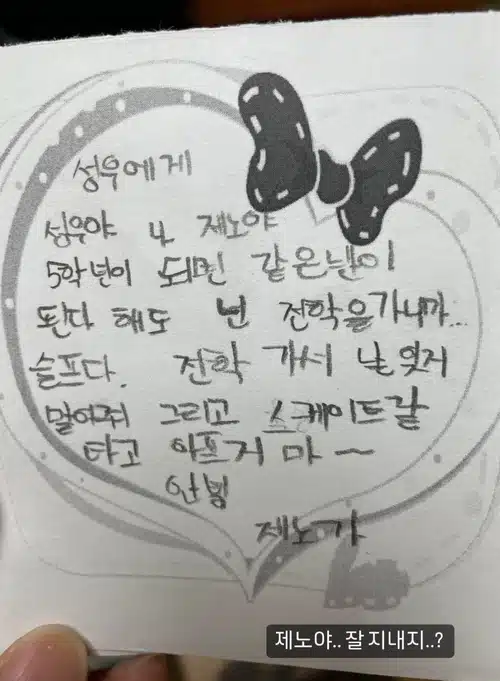 성우에게
성우야 나 제노야
5학년이 되면 같은반이
된다 해도 넌 전학을가니까...
슬프다. 전학 가서 날 잊지
말아줘 그리고 스케이트 잘
타고 아프지 마~
안녕
제노가
제노야.. 잘 지내지..?